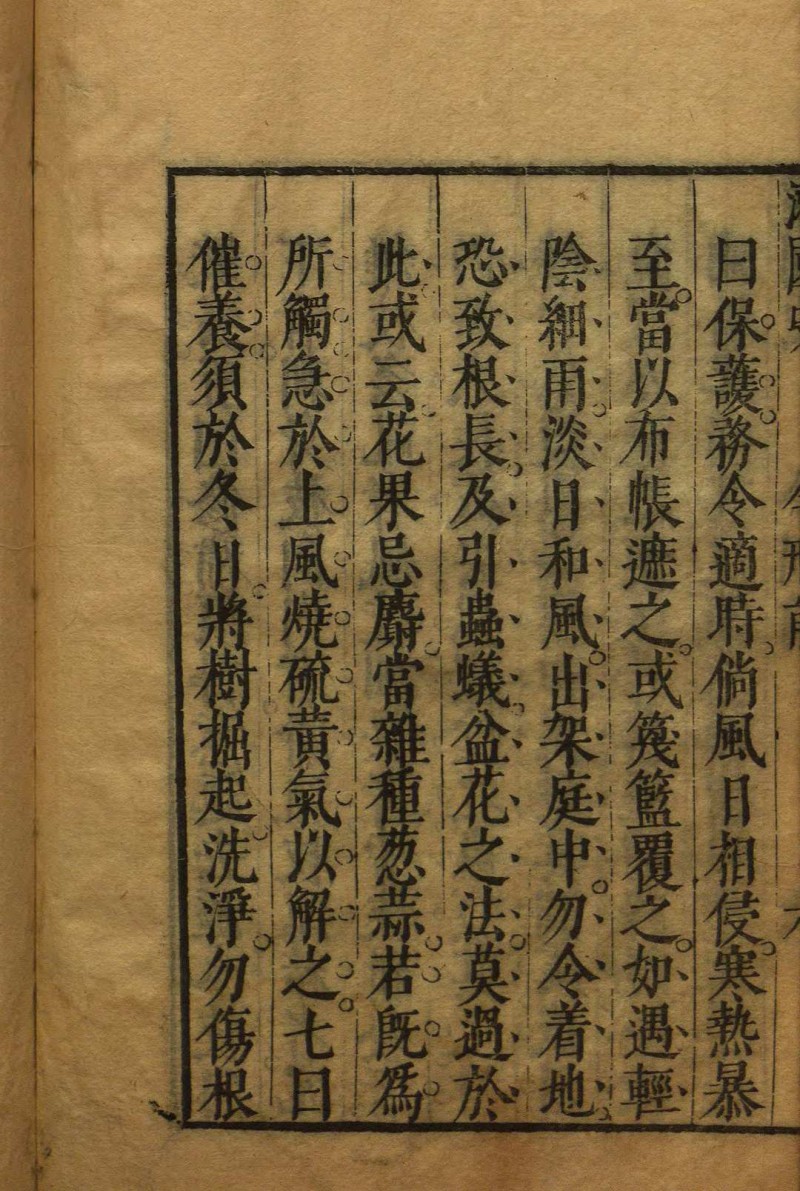 曰保護務令適時倘風日相侵寒熱暴
至當以布帳遮之或篾籃覆之如遇輕
陰細雨淡日和風出架庭中勿令着地
恐致根長及引蟲蟻盆花之法莫過於
此或云花果忌麝當雜種葱蒜若旣爲
所觸急於上風燒硫黃氣以解之七曰
催養須於冬日將樹掘起洗淨勿傷根